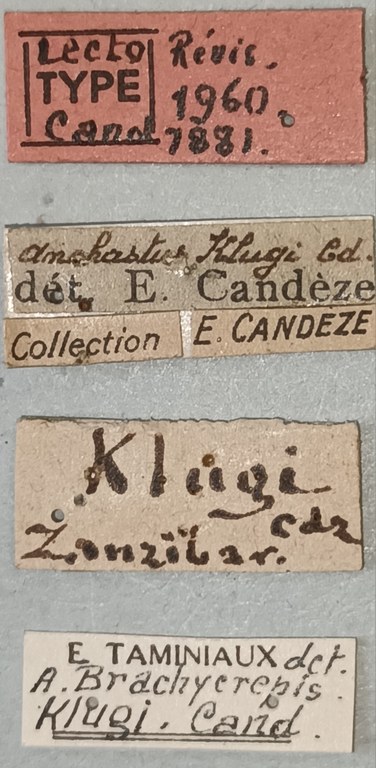 Lecto Révis.
TYPE 1960.
Cand 1881.
Anchastus Klugi Cd.
dét. E. Candèze
Collection E. CANDEZE
Klugi
cdz
Zanzibar.
E. TAMINIAUX det.
A. Brachycrepis.
Klugi. Cand.